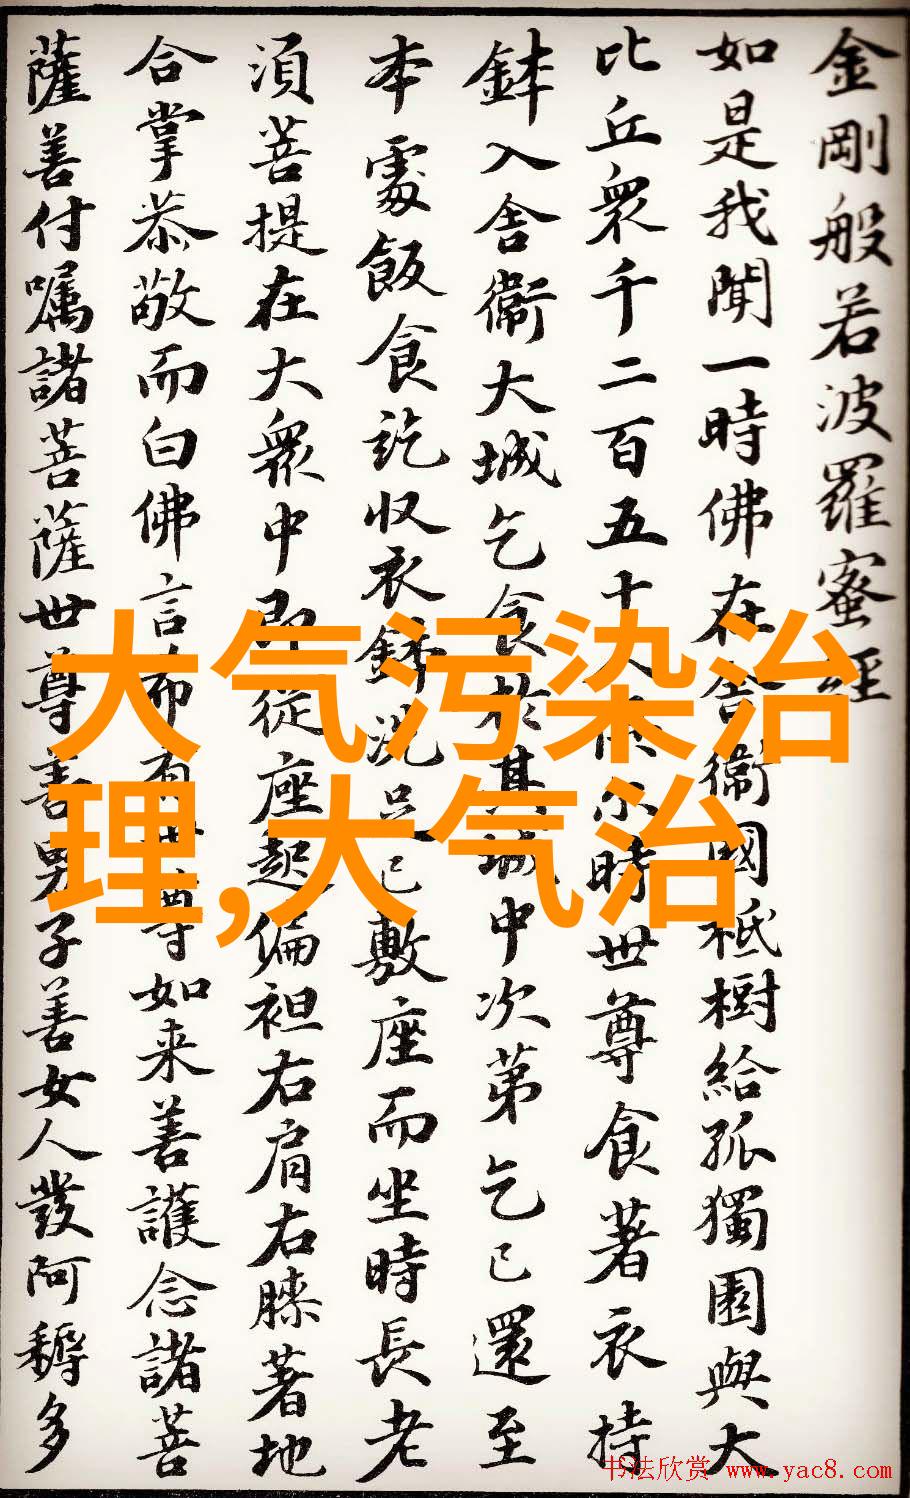 金剛般若波羅蜜經
如是我聞一時佛在舍衞國祇樹給孤獨園與大
比丘衆千二百五十人俱尔時世尊食著衣持
鉢入舍衞大城乞食於其城中次第乞已還至
本處飯食訖收衣鉢洗足已敷座而坐時長老
須菩提在大衆中即從座起偏袒右肩右膝著地
合掌恭敬而白佛言希有世尊如来善護念諸菩
薩善付嘱諸菩薩世尊善男子善女人發阿耨多
大气污染治
理,大气治
书法欣赏 www.yac8.com